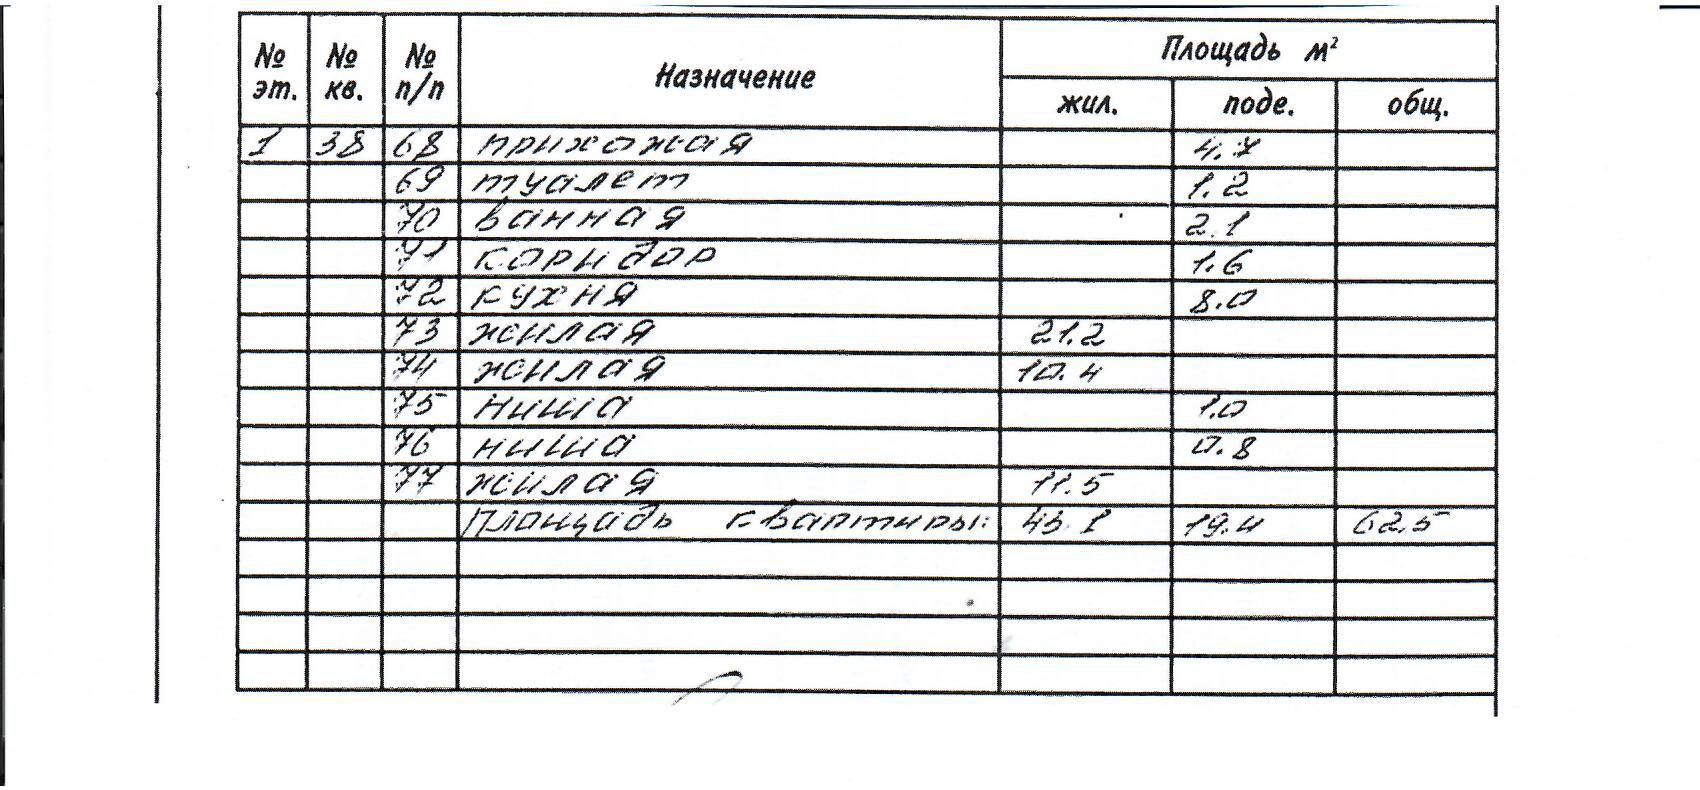 № эт. № кв. № п/п Назначение Площадь м²
жил. поде. общ.
1 38 68 прихожая 4.7
69 туалет 1.2
70 ванная 2.1
71 коридор 1.6
72 кухня 8.0
73 жилая 21.2
74 жилая 10.4
75 ниша 1.0
76 ниша 0.8
77 жилая 11.5
Площадь квартиры: 43.1 19.4 62.5